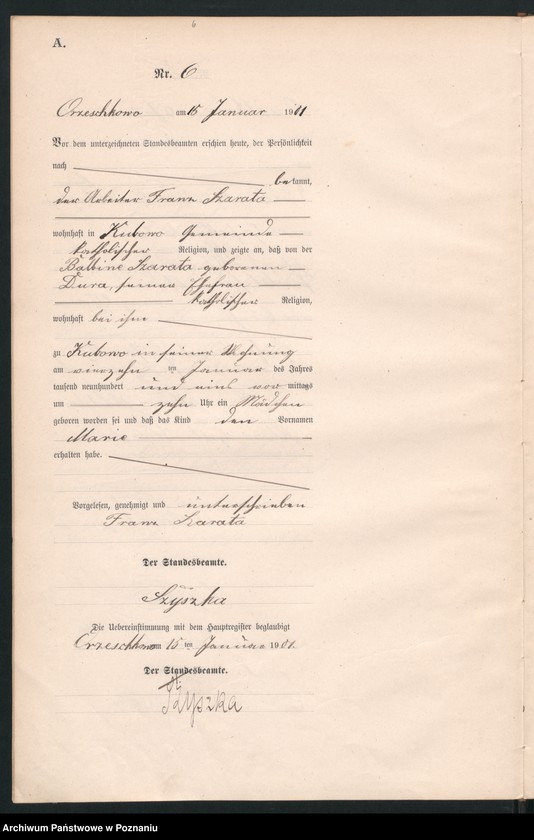 6
A.
Nr. 6
Orzeschkowo am 15 Januar 1901
Vor dem unterzeichneten Standesbeamten erschien heute, der Persönlichkeit
nach
bekannt,
der Arbeiter Franz Szarata
wohnhaft in Kubowo Gemeinde
katholischer Religion, und zeigte an, daß von der
Balbine Szarata geborenen
Dura, seiner Ehefrau
katholischer Religion,
wohnhaft bei ihm
zu Kubowo in seiner Wohnung
am vierzehn ten Januar des Jahres
tausend neunhundert und eins vor mittags
um zehn Uhr ein Mädchen
geboren worden sei und daß das Kind den Vornamen
Marie
erhalten habe.
Vorgelesen, genehmigt und unterschrieben
Franz Szarata
Der Standesbeamte.
Szyszka
Die Uebereinstimmung mit dem Hauptregister beglaubigt
Orzeschkowo am 15 ten Januar 1901.
Der Standesbeamte.
Szyszka
Archiwum Państwowe w Poznaniu